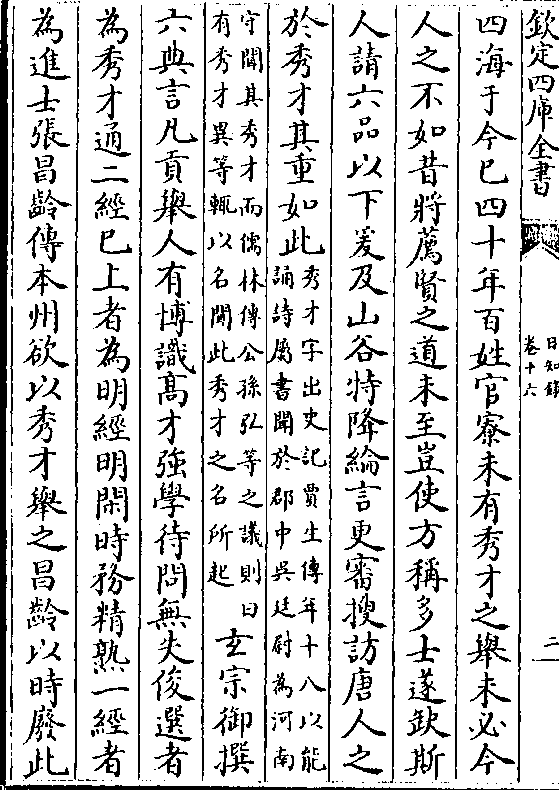 欽定四庫全書
日知錄
卷十六
二
四海于今巳四十年百姓官寮未有秀才之舉未必今
人之不如昔將薦賢之道未至豈使方稱多士遂缺斯
人請六品以下爰及山谷特降綸言更審搜訪唐人之
於秀才其重如此秀才字出史記賈生傳年十八以能
誦詩屬書聞於郡中吳廷尉為河南
守聞其秀才而儒林傳公孫弘等之議則曰
有秀才異等輒以名聞此秀才之名所起玄宗御撰
六典言凡貢舉人有博識髙才強學待問無失俊選者
為秀才通二經巳上者為明經明閑時務精熟一經者
為進士張昌齡傳本州欲以秀才舉之昌齡以時廢此